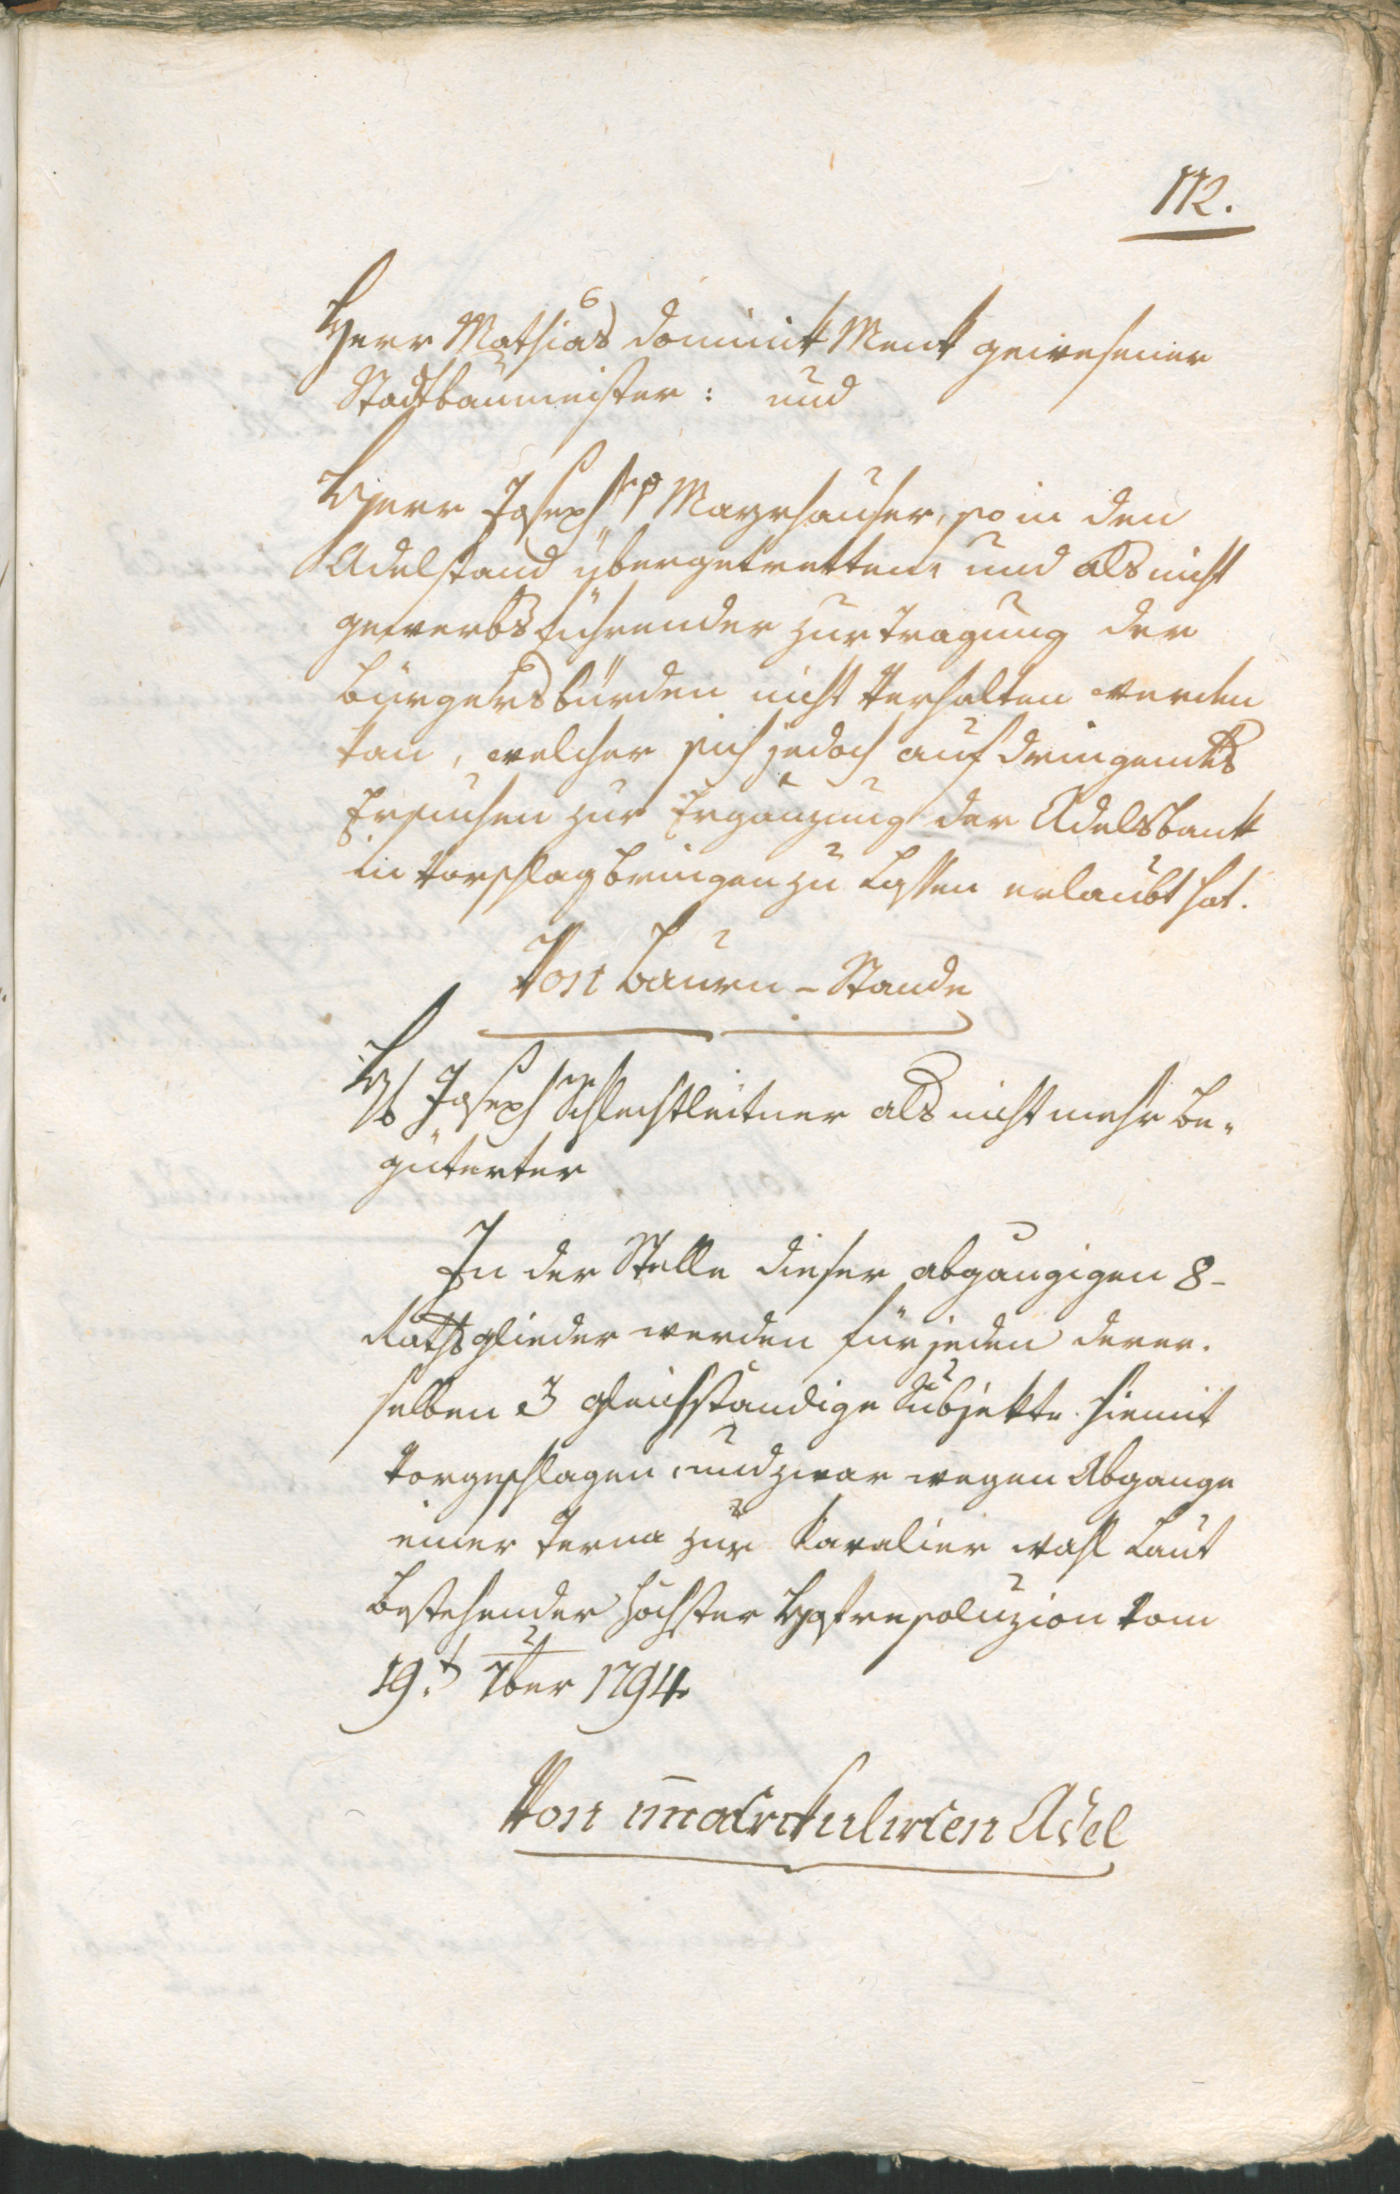 112.
Herr Mathias Dominik Menk gewesener
Stadtbaumeister: und
Herr Joseph Mayrhauser, so in den
Adelstand übergetretten, und als nicht
gewerbsführender zur Tragung der
Bürgersbürden nicht verhalten werden
kan, welcher sich jedoch auf dringendes
Ersuchen zur Ergänzung der Adelsbank
in Vorschlag bringen zu lassen erlaubt hat.
Von Baurn-Stande
H Joseph Schlechtleitner als nicht mehr be-
güterter
In der Stelle dieser abgängigen 8-
Rathsglieder werden für jeden derer-
selben 3 gleichständige Subjekte hiemit
vorgeschlagen, und zwar wegen Abgange
einer Terna zur Kavalier wahl laut
bestehender höchster Hofresoluzion vom
19.t 7ber 1794.
Von immatrikulirten Adel